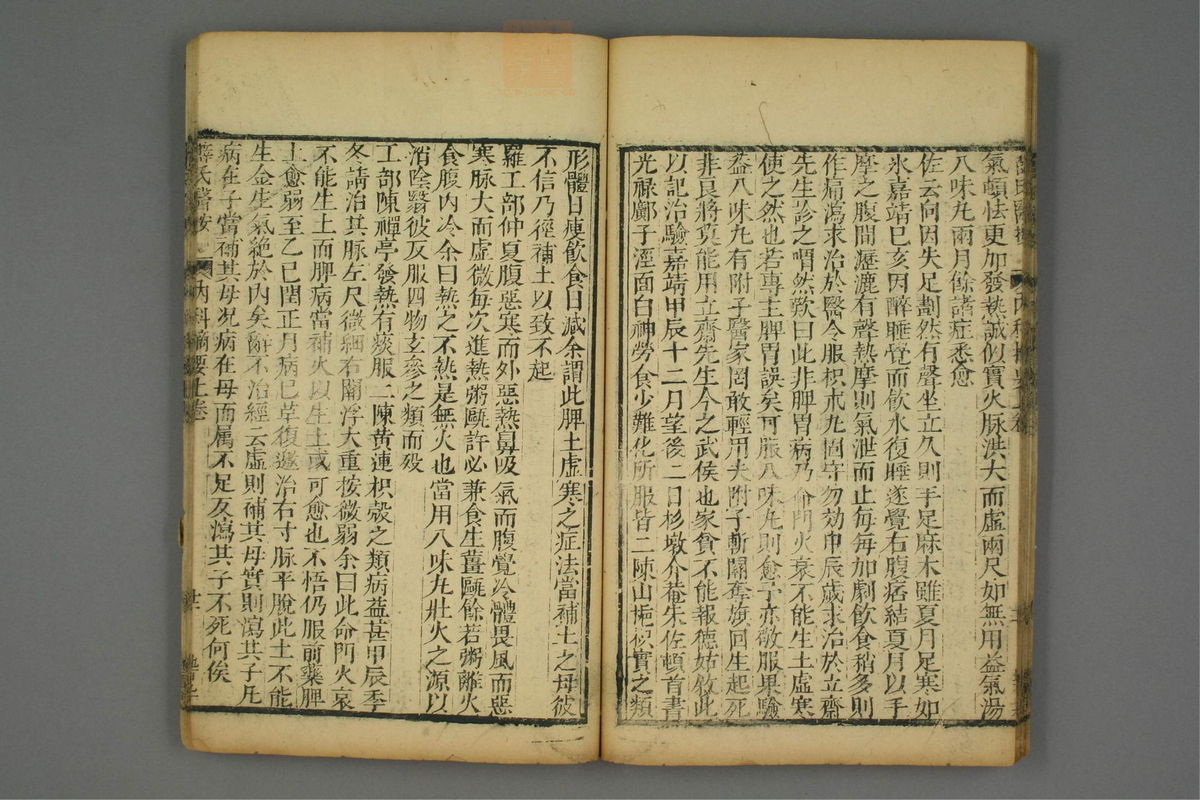 氣頓怯更加發熱誠似實火脉洪大而虛兩尺如無用益氣湯
八味丸兩月餘諸症悉愈
佐云向因失足劃然有聲坐立久則手足麻木雖夏月足寒如
氷嘉靖己亥因醉睡覺而飲水復睡遂覺右腹痞結夏月以手
摩之腹間瀝漉有聲熱摩則氣泄而止每每加劇飲食稍多則
作痛瀉求治於醫令服枳朮丸固守勿効甲辰歲求治於立齋
先生診之喟然歎曰此非脾胃病乃命門火衰不能生土虛寒
使之然也若專主脾胃誤矣可服八味丸則愈予亦敬服果驗
盖八味丸有附子醫家罔敢輕用夫附子斬關奪旗回生起死
非良將莫能用立齋先生今之武侯也家貧不能報德姑敘此
以記治驗嘉靖甲辰十二月望後二日杉墩介菴朱佐頓首書
光祿鄺子涇面白神勞食少難化所服皆二陳山梔枳實之類
形體日瘦飲食日減余謂此脾土虛寒之症法當補土之母彼
不信乃徑補土以致不起
羅工部仲夏腹惡寒而外惡熱鼻吸氣而腹覺冷體畏風而惡
寒脉大而虛微每次進熱粥甌許必兼食生薑甌餘若粥離火
食腹内冷余曰熱之不熱是無火也當用八味丸壯火之源以
消陰翳彼反服四物玄參之類而殁
工部陳禪亭發熱有痰服二陳黃連枳殼之類病益甚甲辰季
冬請治其脉左尺微細右關浮大重按微弱余曰此命門火衰
不能生土而脾病當補火以生土或可愈也不悟仍服前藥脾
土愈弱至乙巳閏正月病已草復邀治右寸脉平脫此土不能
生金生氣絶於内矣辭不治經云虛則補其母實則瀉其子凡
病在子當補其母况病在母而属不足反瀉其子不死何俟
薛氏醫按
内科摘要上卷